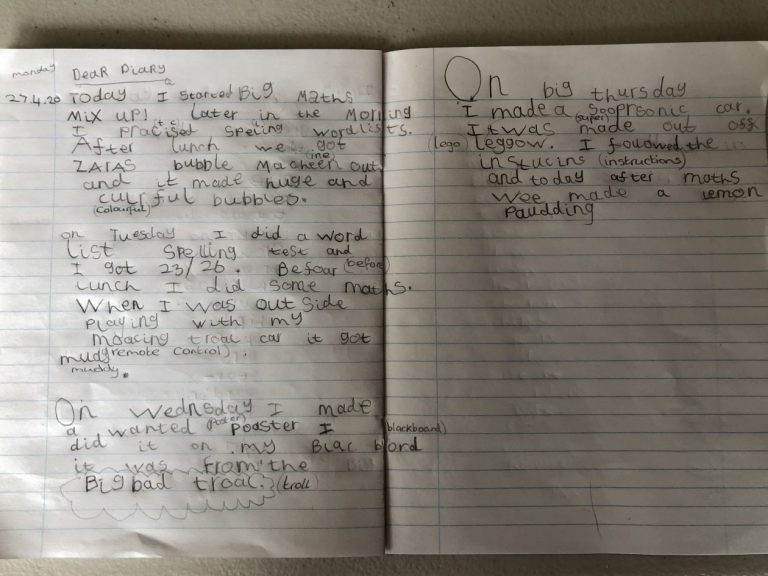 monday Dear Diary
27.4.20 Today I started Big Maths
Mix ups! later in the Morning
I practised speling wordlists.
After lunch we got
ZARAS bubble Macheen out
(ine)
and it made huge and
culrful bubbles.
(colourful)
on Tuesday I did a word
list spelling test and
I got 23/26. Befour (before)
lunch I did some maths.
When I was out side
playing with my
moacing troal car it got
mudy (remote control).
muddy.
On Wednsday I made
a wanted (poster) poaster I
did it on my Blac bord (blackboard)
it was from the
Big bad troal. (troll)
On big thursday
I made a sooprsonic car.
(super)
It was made out off
(lego) leggow. I followed the
instucins (instructions)
and today after maths
wee made a lemon
paudding